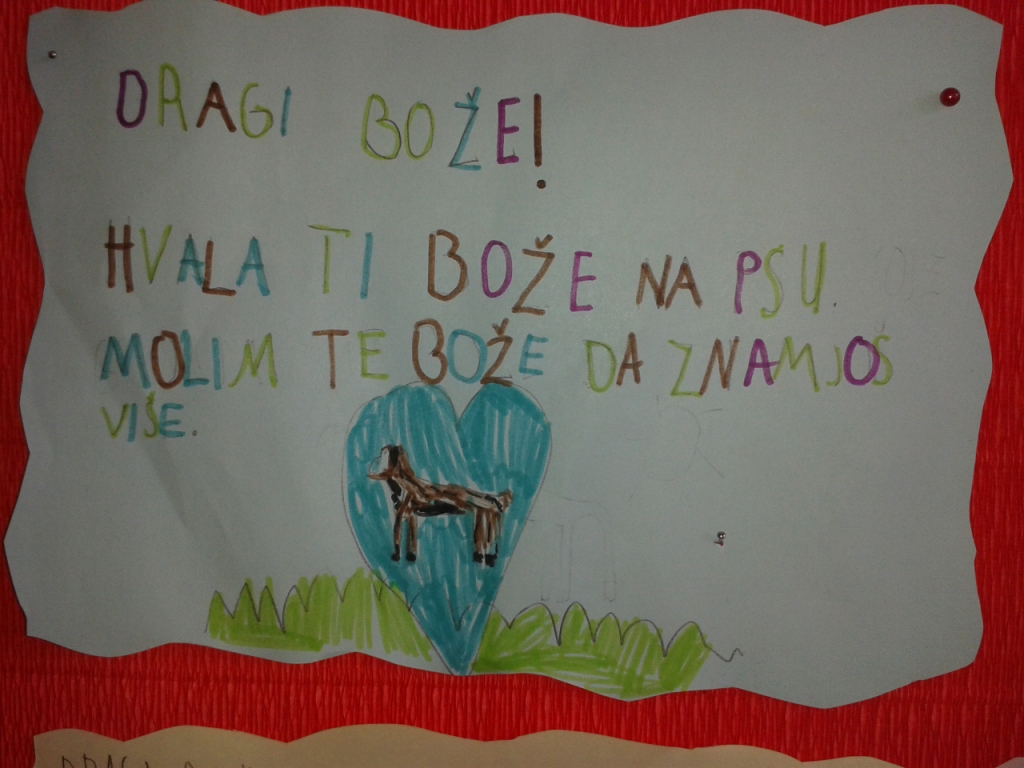 DRAGI BOŽE!
HVALA TI BOŽE NA PSU.
MOLIM TE BOŽE DA ZNAM JOŠ
VIŠE.
DRAGI